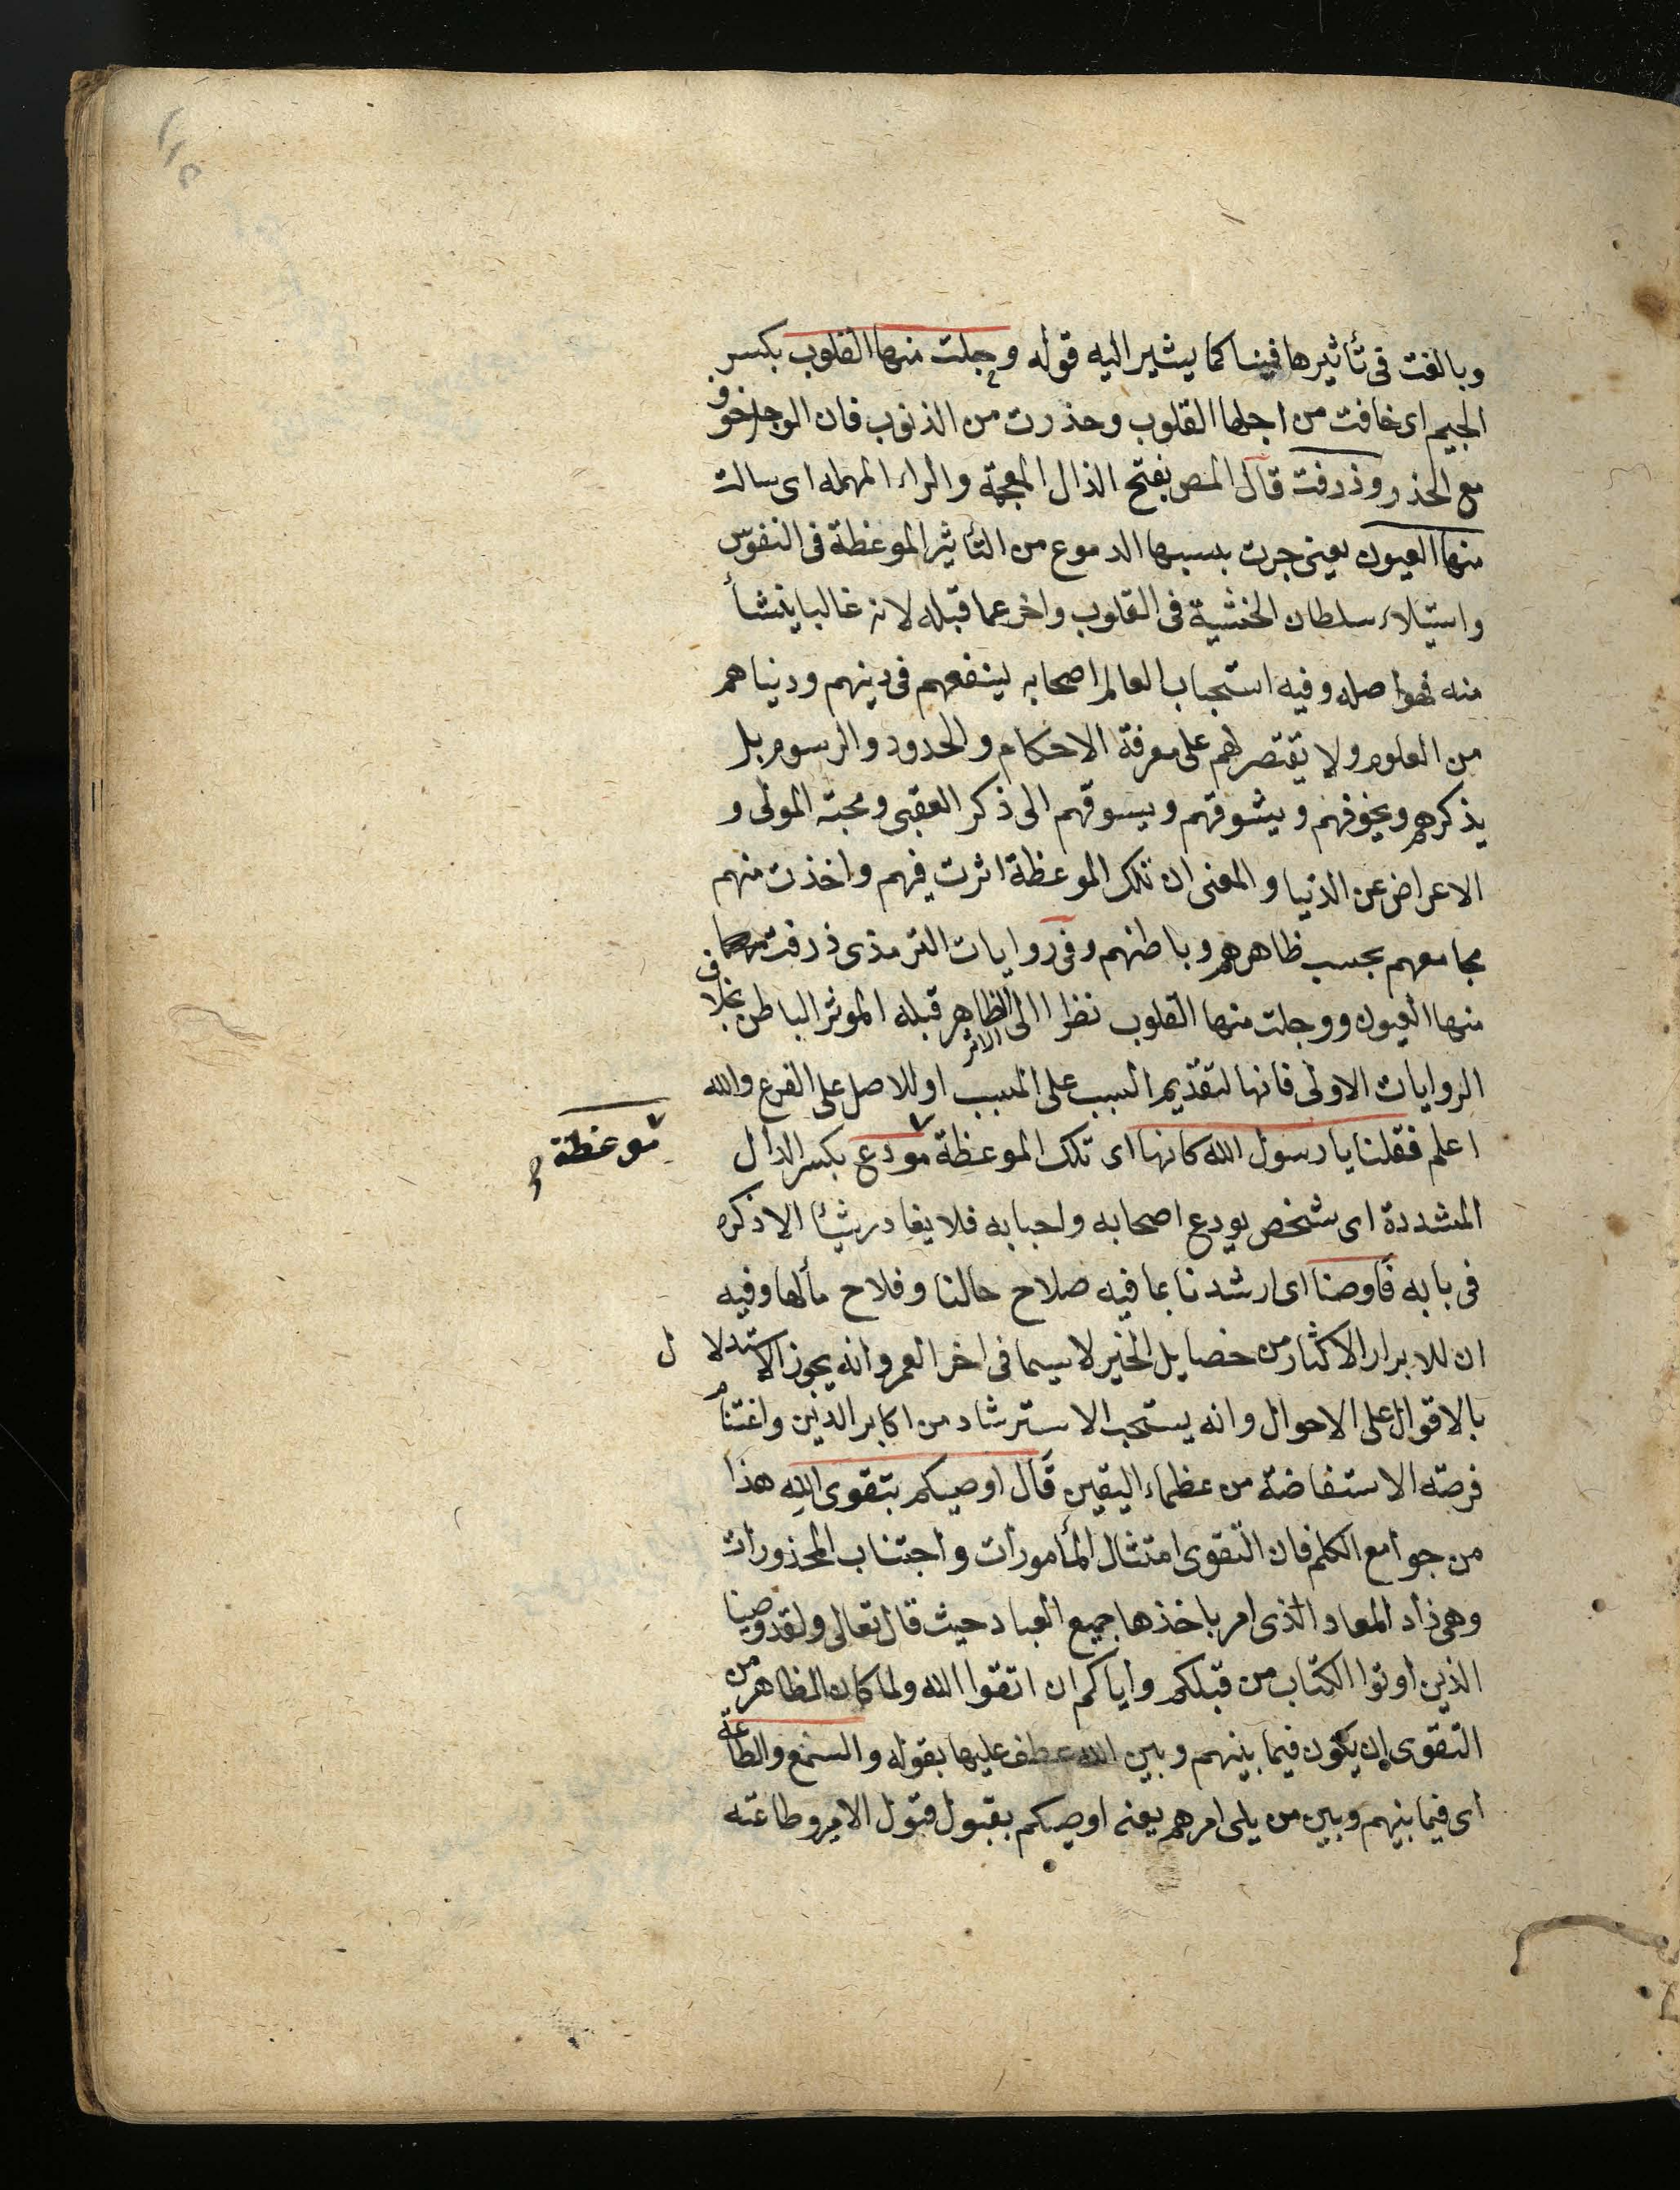 وبالغت فى تأثيرها فينا كما يشير اليه قوله وجلت منها القلوب بكسر
الجيم اى خافت من اجلها القلوب وحذرت من الذنوب فان الوجل خوف
مع الحذر وذرفت قال المص بفتح الذال المعجمة والراء المهمله اى سالت
منها العيون يعنى جرت بسببها الدموع من التأثير الموعظة فى النفوس
واستيلاء سلطان الخشية فى القلوب واخر عما قبله لانه غالبا ينشأ
منه فهو اصله وفيه استحباب العالم اصحابه لينفعهم فى دينهم ودنياهم
من العلوم ولا يقتصر لهم على معرفة الاحكام والحدود والرسوم بل
يذكرهم ويخوفهم ويشوقهم ويسوقهم الى ذكر العقبى ومحبته المولى و
الاعراض عن الدنيا والمعنى ان تلك الموعظة اثرت فيهم واخذت منهم
مجامعهم بحسب ظاهرهم وباطنهم وفى روايات الترمذى ذرفت
منها العيون ووجلت منها القلوب نظرا الى الظاهر الاثر قبله الموثر الباطن بخلاف
الروايات الاولى فانها لتقديم السبب على المسبب او للاصل على الفرع والله
اعلم فقلنا يا رسول الله كانها اى تلك الموعظة مودع بكسر الدال
موعظة
المشددة اى شخص يودع اصحابه واحبابه فلا يغادر شيئا الا ذكره
فى بابه فاوصنا اى ارشدنا بما فيه صلاح حالنا وفلاح مألها وفيه
ان للابرار الاكثار من خصايل الخير لا سيما فى اخر العمر وانه يجوز الاستدلال
بالاقوال على الاحوال وانه يستحب الاسترشاد من اكابر الدين واغتنام
فرصته الاستفاضة من عظماء اليقين قال اوصيكم بتقوى الله هذا
من جوامع الكلم فان التقوى امتثال المأمورات واجتناب المحذورات
وهى زاد المعاد الذى امر باخذها جميع العباد حيث قال تعالى ولقد وصينا
الذين اوتوا الكتاب من قبلكم واياكم ان اتقوا الله ولما كان الظاهر من
التقوى ان يكون فيما بينهم وبين الله عطف عليها بقوله والسمع والطاعة
اى فيما بينهم وبين من يلى امرهم يعنى اوصيكم بقبول قبول الامر وطاعته